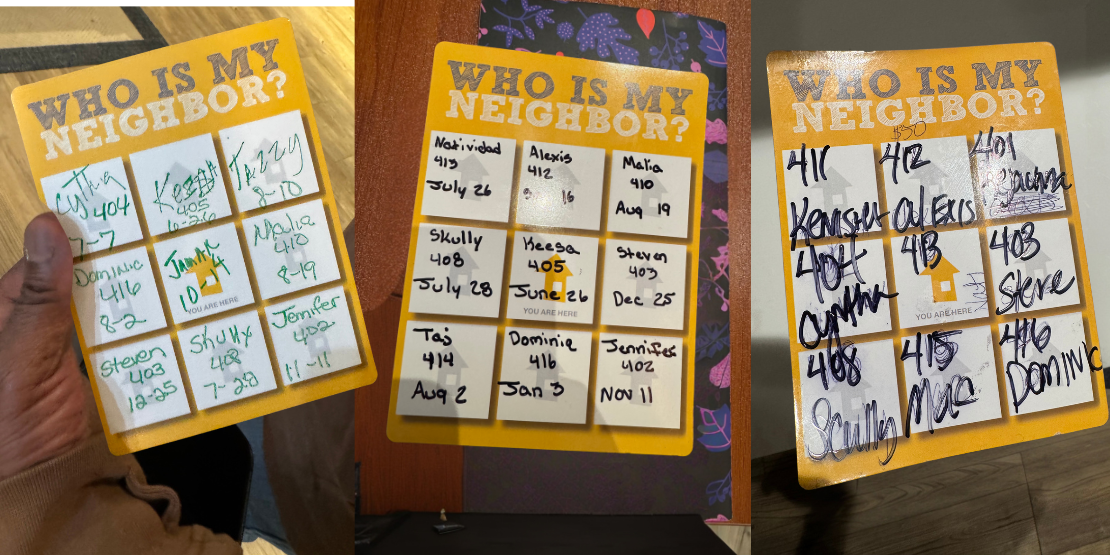 WHO IS MY
NEIGHBOR?
404
7-7
405
6-26
Jazzy
8-10
Dominic
416
8-2
10-14
YOU ARE HERE
410
8-19
Steven
403
12-25
Skully
408
7-28
Jennifer
402
11-11
WHO IS MY
NEIGHBOR?
Natividad
413
July 26
Alexis
412
16
Malia
410
Aug 19
Skully
408
July 28
Keesa
405
June 26
YOU ARE HERE
Steven
403
Dec 25
Tas
414
Aug 2
Dominic
416
Jan 3
Jennifer
402
Nov 11
WHO IS MY
NEIGHBOR?
$30
411
412
Alexis
401
404
Cynthia
413
YOU ARE HERE
403
Steve
408
Scully
415
Marc
416
Dominic